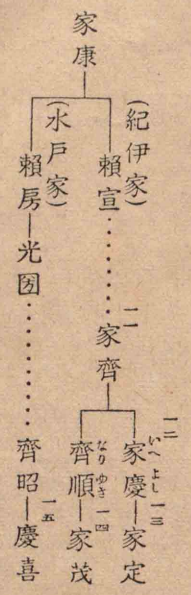 家康
(紀伊家)
賴宣
一一
家齊
一二
家慶
いへよし
一三
家定
齊順
なりゆき
一四
家茂
(水戶家)
賴房
光圀
齊昭
一五
慶喜